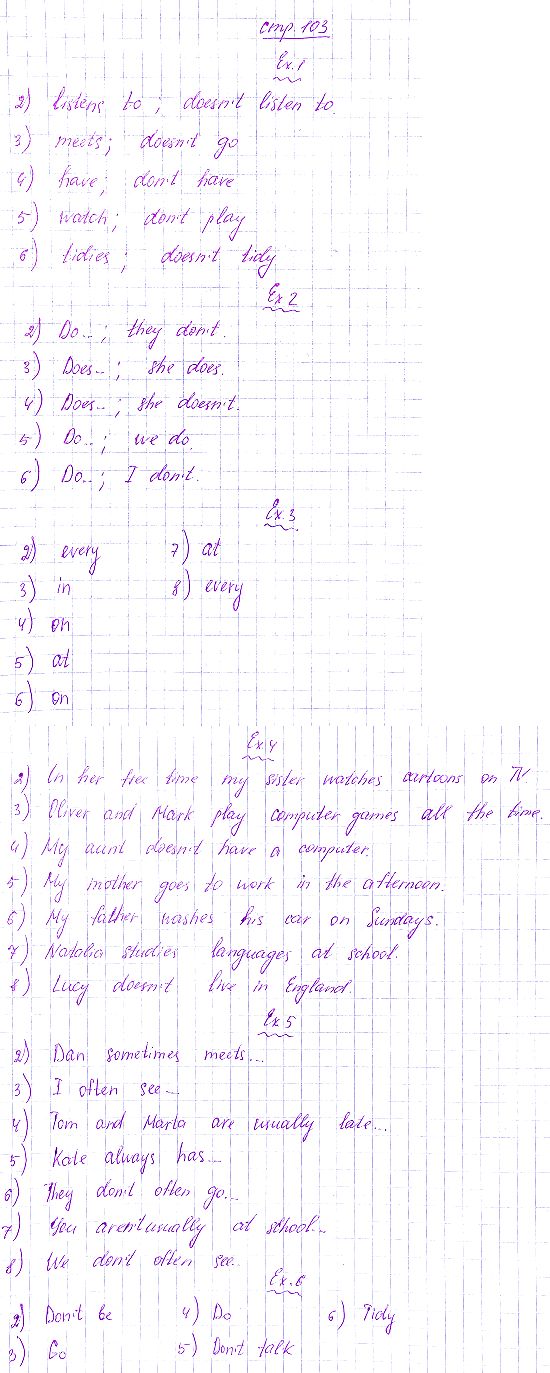 стр. 103
Ex. 1
2) listens to ; doesn't listen to.
3) meets; doesn't go
4) have; don't have
5) watch; don't play
6) tidies; doesn't tidy
Ex 2
2) Do...; they don't.
3) Does...; she does.
4) Does...; she doesn't.
5) Do...; we do.
6) Do...; I don't.
Ex. 3
2) every 7) at
3) in 8) every
4) on
5) at
6) on
Ex 4
2) In her free time my sister watches cartoons on TV
3) Oliver and Mark play computer games all the time.
4) My aunt doesn't have a computer.
5) My mother goes to work in the afternoon.
6) My father washes his car on Sundays.
7) Natalia studies languages at school.
8) Lucy doesn't live in England.
Ex 5
2) Dan sometimes meets...
3) I often see...
4) Tom and Marta are usually late...
5) Kate always has...
6) They don't often go...
7) You aren't usually at school...
8) We don't often see...
Ex. 6
2) Don't be 4) Do 6) Tidy
3) Go 5) Don't talk